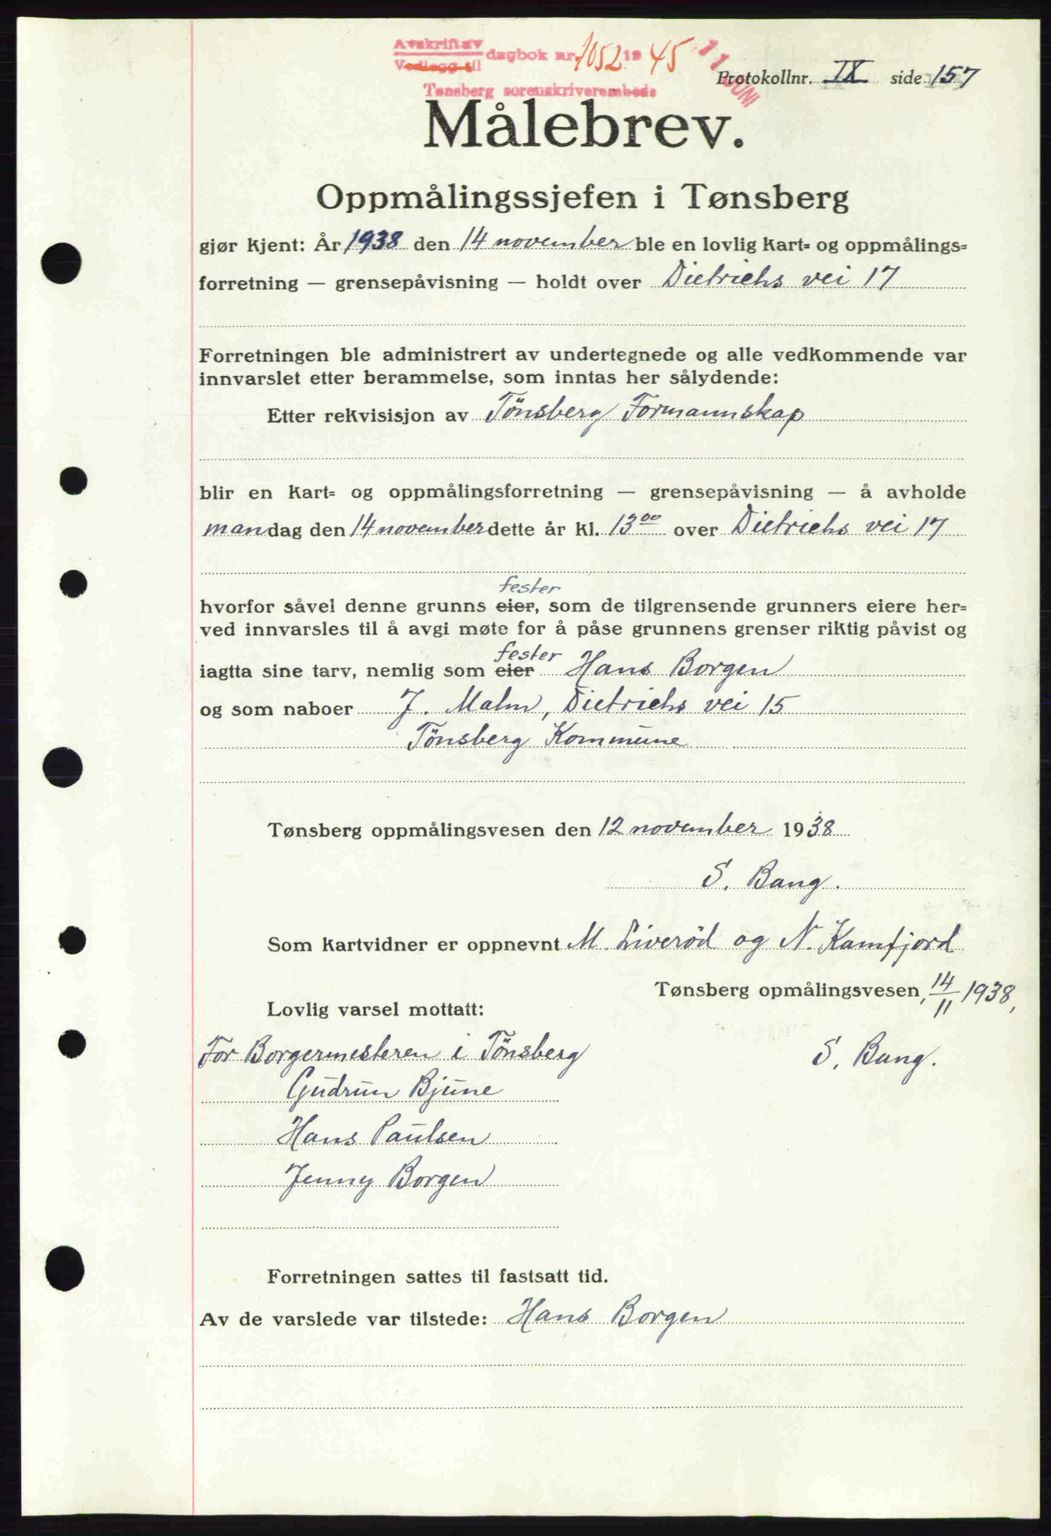 Avskrift av
Vedlegg til dagbok nr. 1052 19 45 11 JUNI
Tønsberg sorenskriverembede
Protokollnr. IX side 157
Målebrev.
Oppmålingssjefen i Tønsberg
gjør kjent: År 1938 den 14 november ble en lovlig kart= og oppmålings=
forretning — grensepåvisning — holdt over Dietrichs vei 17
Forretningen ble administrert av undertegnede og alle vedkommende var
innvarslet etter berammelse, som inntas her sålydende:
Etter rekvisisjon av Tönsberg Formannskap
blir en kart= og oppmålingsforretning — grensepåvisning — å avholde
mandag den 14 november dette år kl. 13 00 over Dietrichs vei 17
fester
hvorfor såvel denne grunns eier, som de tilgrensende grunners eiere her=
ved innvarsles til å avgi møte for å påse grunnens grenser riktig påvist og
fester
iagtta sine tarv, nemlig som eier Hans Borgen
og som naboer J. Malm, Dietrichs vei 15
Tönsberg Kommune
Tønsberg oppmålingsvesen den 12 november 1938
S. Bang.
Som kartvidner er oppnevnt M. Liveröd og N. Kamfjord
Tønsberg opmålingsvesen, 14/11 1938,
Lovlig varsel mottatt:
For Borgermesteren i Tönsberg S. Bang.
Gudrun Bjune
Hans Paulsen
Jenny Borgen
Forretningen sattes til fastsatt tid.
Av de varslede var tilstede: Hans Borgen